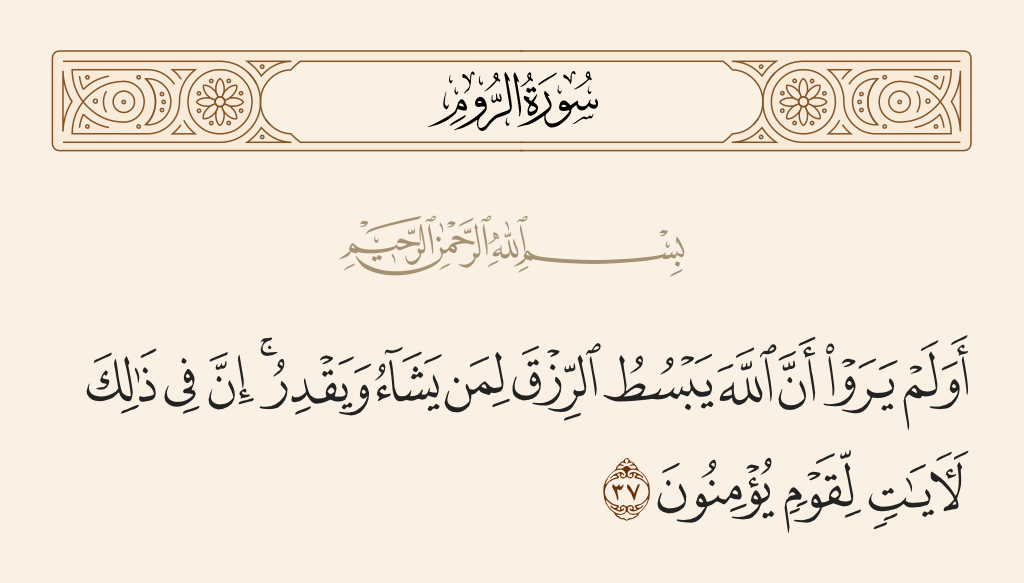 سُورَةُ الرُّومِ
بِسْمِ ٱللَّهِ ٱلرَّحْمَٰنِ ٱلرَّحِيمِ
أَوَلَمْ يَرَوْا۟ أَنَّ ٱللَّهَ يَبْسُطُ ٱلرِّزْقَ لِمَن يَشَآءُ وَيَقْدِرُ ۚ إِنَّ فِى ذَٰلِكَ
لَـَٔايَـٰتٍ لِّقَوْمٍ يُؤْمِنُونَ ٣٧